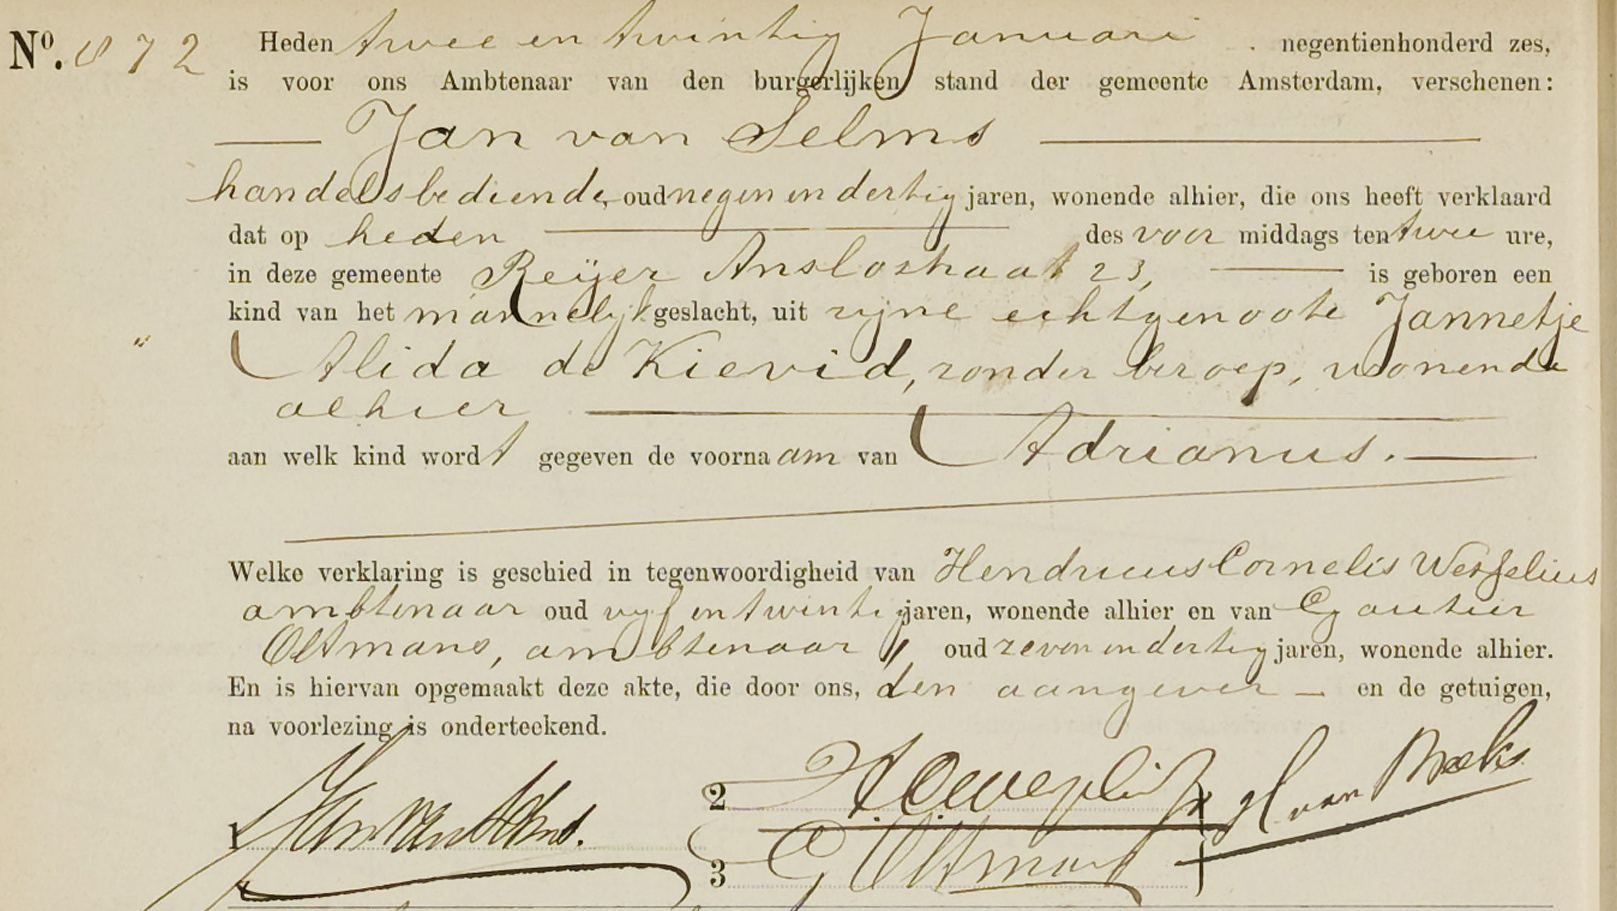 No. 872 Heden twee en twintig Januari negentienhonderd zes,
is voor ons Ambtenaar van den burgerlijken stand der gemeente Amsterdam, verschenen:
Jan van Selms
handelsbediende, oud negen en dertig jaren, wonende alhier, die ons heeft verklaard
dat op heden des voor middags ten twee ure,
in deze gemeente Reijer Anslostraat 23, is geboren een
kind van het mannelijk geslacht, uit zijne echtgenoote Jannetje
Alida de Kievid, zonder beroep, wonende
alhier
aan welk kind wordt gegeven de voornaam van Adrianus.
Welke verklaring is geschied in tegenwoordigheid van Hendricus Cornelis Wesselius
ambtenaar oud vijf en twintig jaren, wonende alhier en van Gautier
Oltmans, ambtenaar oud zeven en dertig jaren, wonende alhier.
En is hiervan opgemaakt deze akte, die door ons, den aangever en de getuigen,
na voorlezing is onderteekend.
Jan van Selms.
2
3 G Oltmans